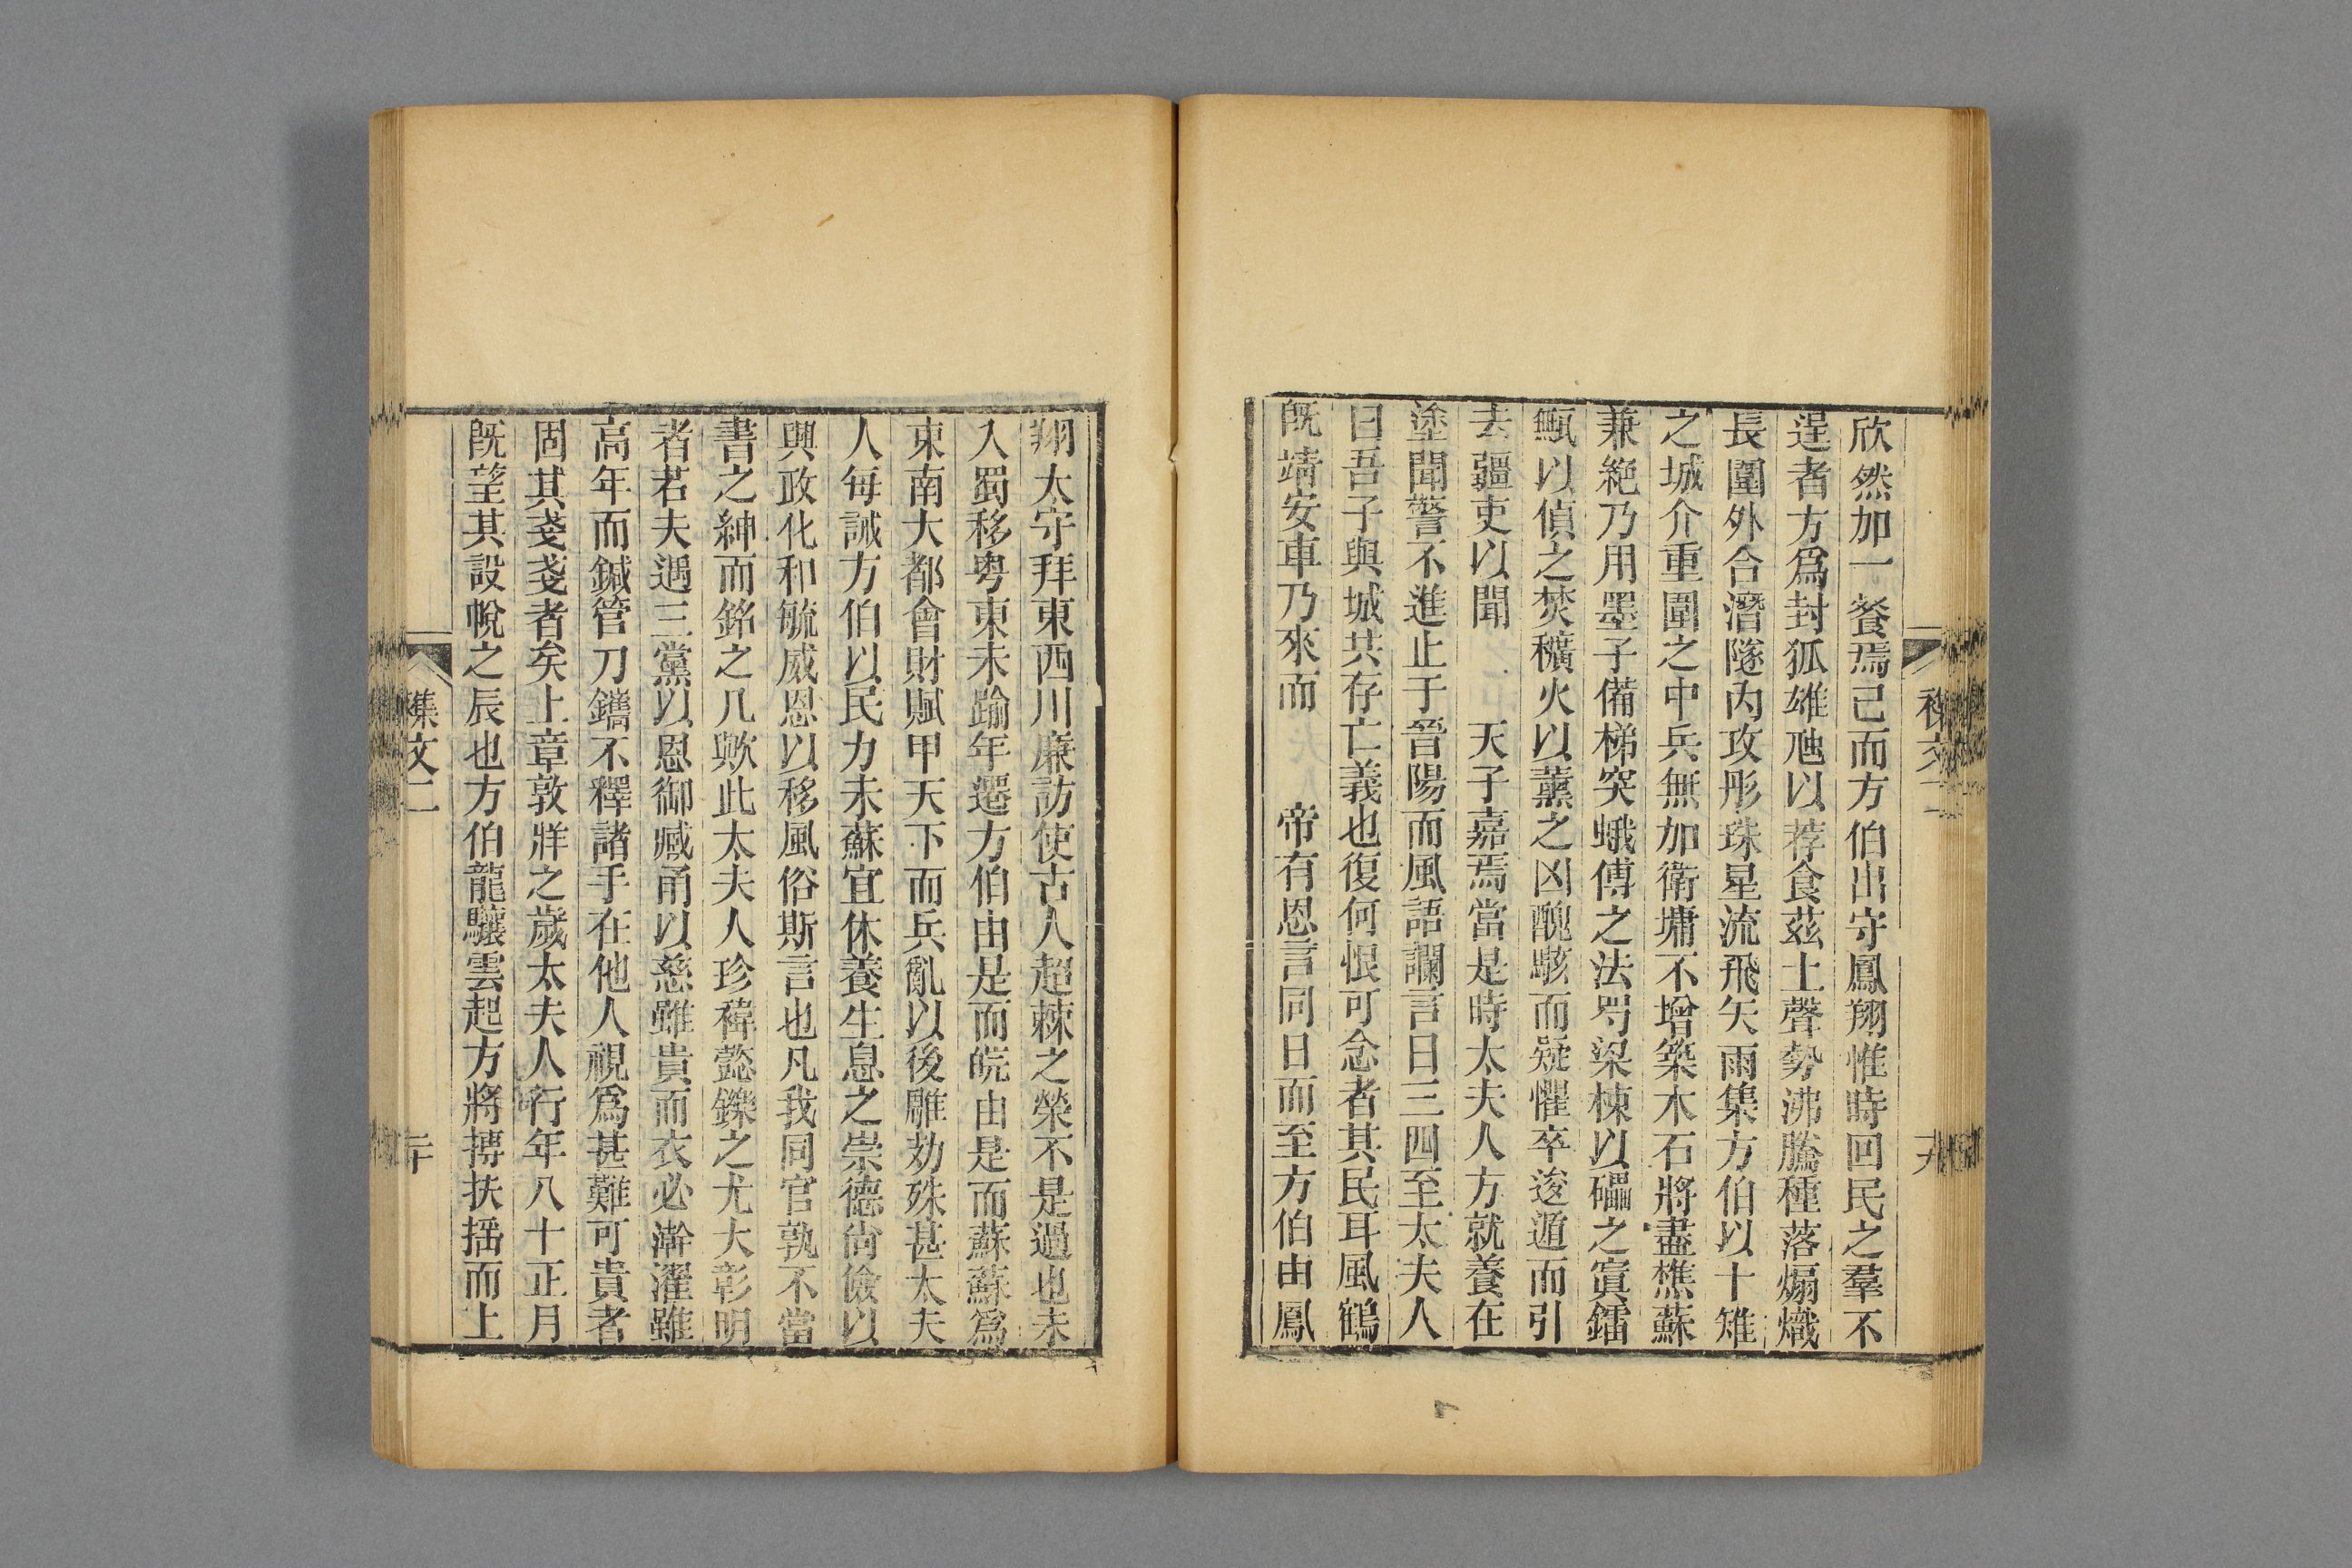 欣然加一餐焉已而方伯出守鳳翔惟時回民之羣不
逞者方爲封狐雄虺以荐食茲土聲勢沸騰種落煽熾
長圍外合潛隧內攻彤珠星流飛矢雨集方伯以十雉
之城介重圍之中兵無加衛墉不增築木石將盡樵蘇
兼絶乃用墨子備梯突蛾傅之法罚梁棟以礧之寘鐳
甀以偵之焚穬火以薰之凶醜駭而疑懼卒逡遁而引
去疆吏以聞　　天子嘉焉當是時太夫人方就養在
塗聞警不進止于晉陽而風語讕言日三四至太夫人
曰吾子與城共存亡義也復何恨可念者其民耳風鶴
旣靖安車乃來而　　帝有恩言同日而至方伯由鳳
翔太守拜東西川廉訪使古人超棘之榮不是過也未
入蜀移粤東未踰年遷方伯由是而皖由是而蘇蘇爲
東南大都會財賦甲天下而兵亂以後雕劾殊甚太夫
人每誡方伯以民力未蘇宜休養生息之崇德尙儉以
與政化和毓威恩以移風俗斯言也凡我同官孰不當
書之紳而銘之几歟此太夫人珍褘懿鑠之尤大彰明
者若夫遇三黨以恩御臧甬以慈雖貴而衣必澣濯雖
高年而鍼管刀鑴不釋諸手在他人視爲甚難可貴者
固其戔戔者矣上章敦牂之歲太夫人行年八十正月
旣望其設帨之辰也方伯龍驤雲起方將摶扶搖而上
襍文二
二十